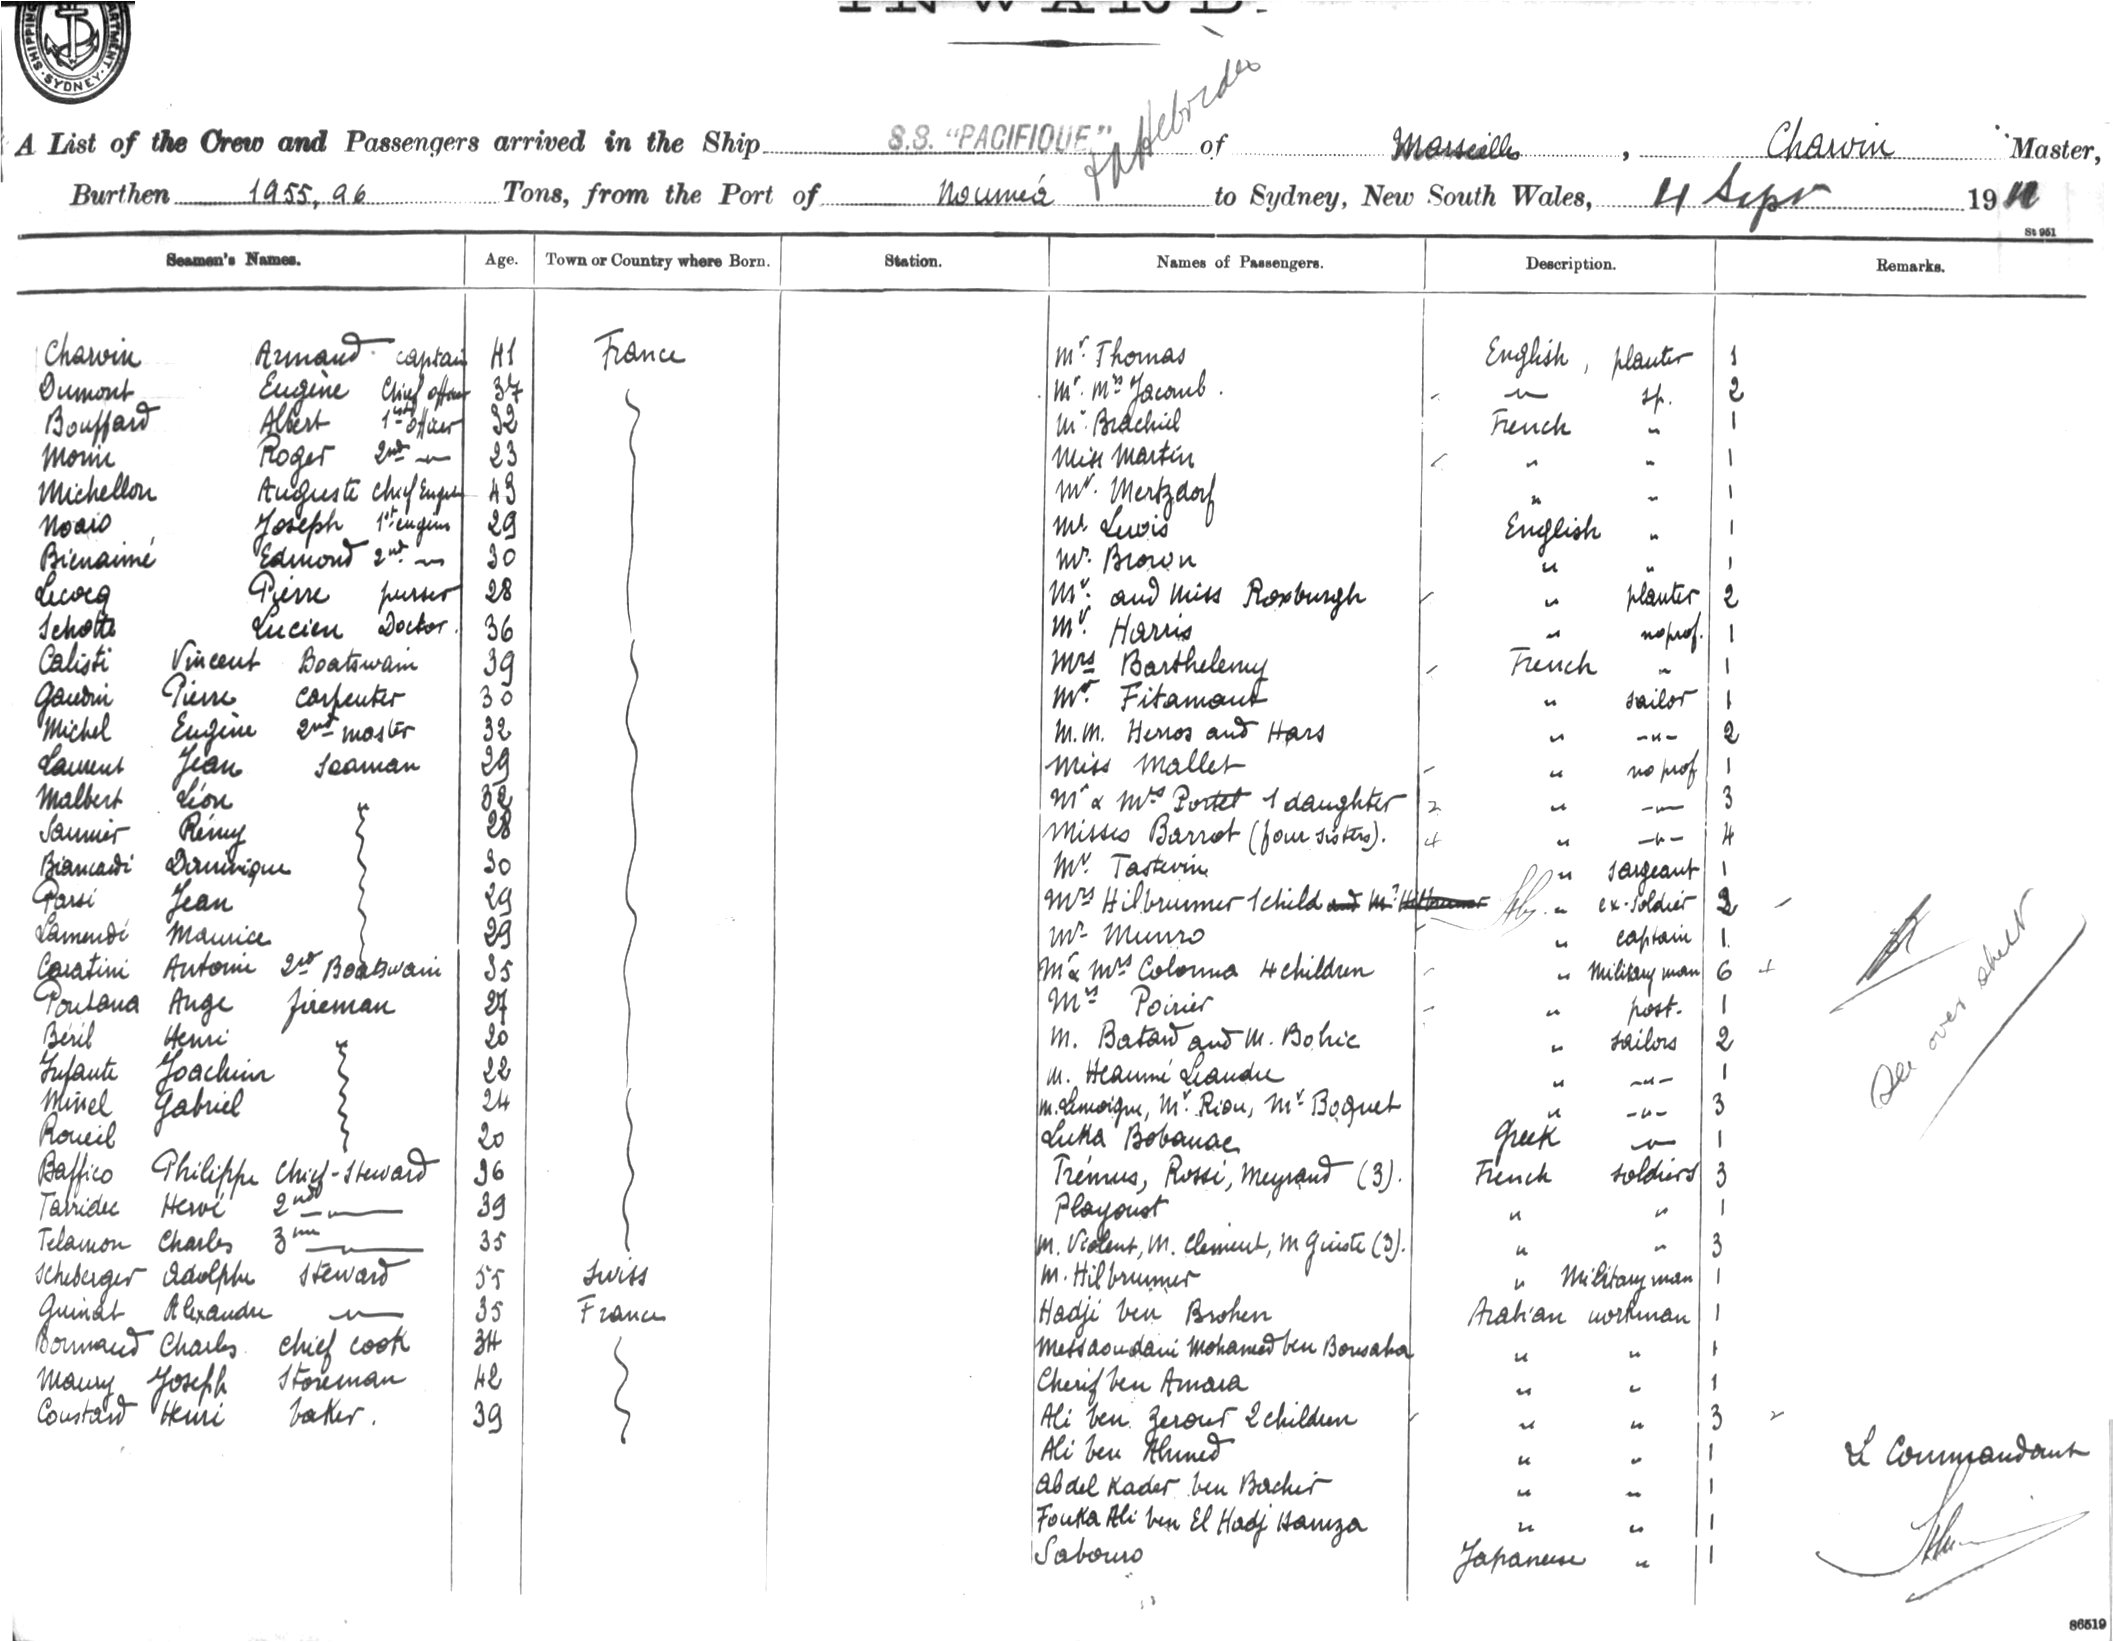 INWARD.
SHIPPING DEPARTMENT SYDNEY
& N Hebrides
A List of the Crew and Passengers arrived in the Ship S.S. "PACIFIQUE" of Marseilles, Charvin Master,
Burthen 1955,96 Tons, from the Port of Nouméa to Sydney, New South Wales, 4 Sept 191
St 951
Seamen's Names. Age. Town or Country where Born. Station. Names of Passengers. Description. Remarks.
Charvin Armand captain 41 France Mr. Thomas English, planter 1
Dumont Eugène Chief officer 37 Mr. Mrs Jacomb. " sp. 2
Bouffard Albert 1st officer 32 Mr. Brachiel French " 1
Morin Roger 2nd " 23 Miss Martin " " 1
Michellon Auguste Chief Engin 43 Mr. Mertzdorf " " 1
Joseph 1st engin 29 Mr. Lewis English " 1
Bienaimé Edmond 2nd " 30 Mr. Brown " " 1
Lecocq Pierre purser 28 Mr. and Miss Roxburgh " planter 2
Schotte Lucien Doctor. 36 Mr. Harris " no prof. 1
Calisti Vincent Boatswain 39 Mrs Barthelemy French " 1
Gaudin Pierre carpenter 30 Mr. Fitamant " sailor 1
Michel Eugène 2nd master 32 M.M. Herros and Hars " -"- 2
Laurent Jean seaman 29 Miss Mallet " no prof 1
Malbert Léon 32 Mr & Mrs Portet 1 daughter 2 " -"- 3
Saunier Rémy 28 Misses Barrot (four sisters). 4 " -"- 4
Biancardi Dominique 30 Mr. Tastevin " sargeant 1
Parsi Jean 29 Mrs Hilbrunner 1 child and Mr Hilbrunner " ex-soldier 2
Lamendi Maurice 29 Mr. Munro " captain 1
Caratini Antoine 2nd Boatswain 35 Mr & Mrs Colonna 4 children " Military man 6
Pontana Ange fireman 27 Mrs Poirier " post. 1
Béril Henri 20 M. Batard and M. Bohic " sailors 2
Infante Joachim 22 M. Heaumé Leandre " -"- 1
Minel Gabriel 24 M. Lemoigne, Mr. Riou, Mr. Boquet " -"- 3
Roueil 20 Luka Bobanac Greek " 1
Baffico Philippe Chief-Steward 36 Trémus, Rossi, Meyrand (3). French soldiers 3
Tarridec Hervé 2nd " 39 Playoust " " 1
Telamon Charles 3me " 35 M. Violent, M. Clement, M Giuste (3). " " 3
Scheberger Adolphe Steward 55 Swiss M. Hilbrunner " Military man 1
Guinat Alexandre " 35 France Hadji ben Brohen Arabian workman 1
Bonnaud Charles chief cook 34 Messaoudani Mohamed ben Bousaha " " 1
Maury Joseph Storeman 42 Cherif ben Amara " " 1
Coustard Henri baker. 39 Ali ben Zerour 2 children " " 3
Ali ben Ahmed " " 1
Abdel Kader ben Bachir " " 1
Fouka Ali ben El Hadj Hamza " " 1
Sabouro Japanese " 1
See over sheet
Le Commandant
86519